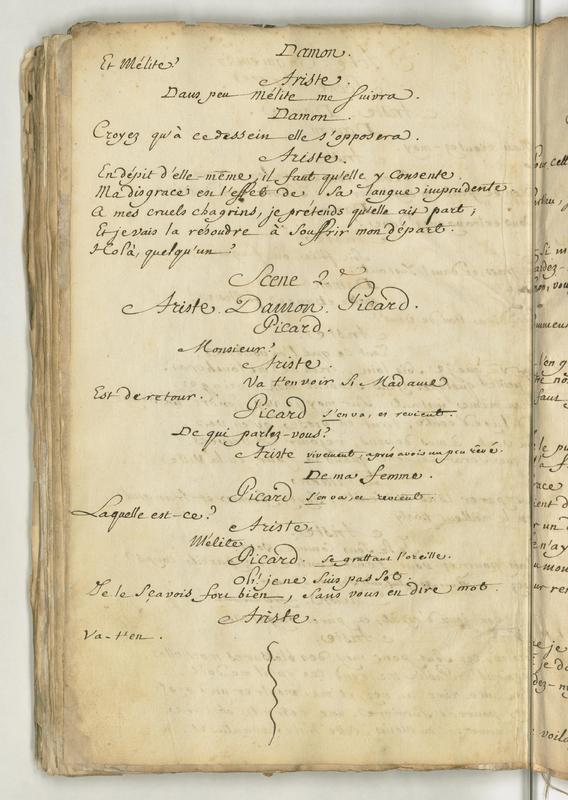 Damon.
Et Mélite?
Ariste.
Dans peu Mélite me suivra.
Damon.
Croyez qu'à ce dessein elle s'opposera.
Ariste.
En dépit d'elle-même, il faut qu'elle y consente.
Ma disgrace est l'effet de sa langue imprudente.
A mes cruels chagrins, je prétends qu'elle ait part;
Et je vais la résoudre à souffrir mon départ.
Holà, quelqu'un?
Scene 2.e
Ariste. Damon. Picard.
Picard.
Monsieur?
Ariste.
Va t'en voir si Madame
Est de retour.
Picard s'en va, et revient.
De qui parlez-vous?
Ariste vivement, après avoir un peu rêvé.
De ma femme.
Picard s'en va, et revient.
Laquelle est-ce?
Ariste.
Mélite
Picard. se grattant l'oreille.
Oh! je ne suis pas sot.
Je le sçavois fort bien, sans vous en dire mot.
Ariste.
Va-t'en.